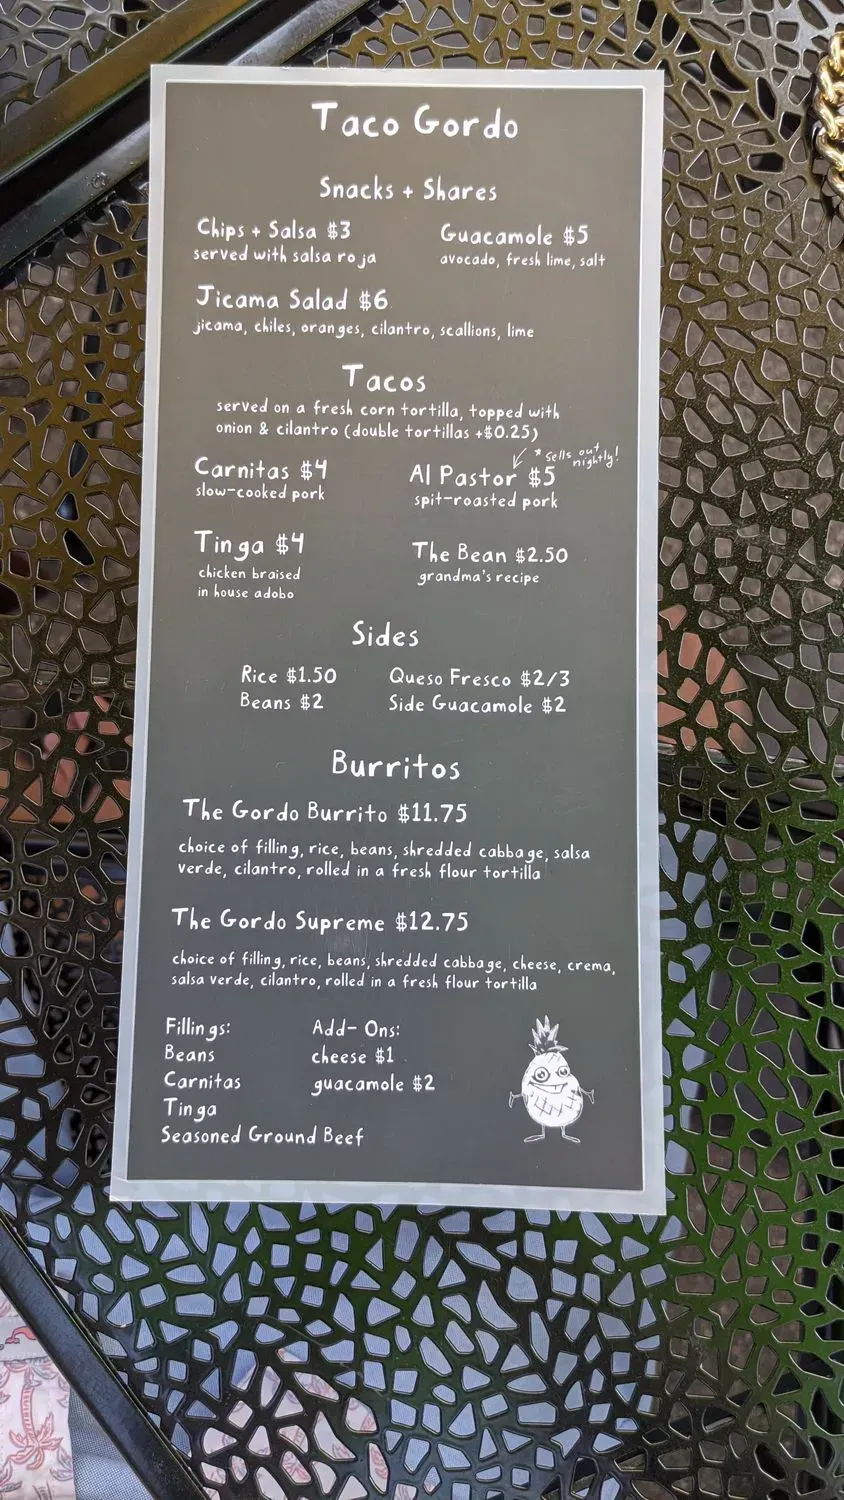 Taco Gordo
Snacks + Shares
Chips + Salsa $3
served with salsa roja
Guacamole $5
avocado, fresh lime, salt
Jicama Salad $6
jicama, chiles, oranges, cilantro, scallions, lime
Tacos
served on a fresh corn tortilla, topped with
onion & cilantro (double tortillas +$0.25)
* sells out
nightly!
Carnitas $4
slow-cooked pork
Al Pastor $5
spit-roasted pork
Tinga $4
chicken braised
in house adobo
The Bean $2.50
grandma's recipe
Sides
Rice $1.50
Beans $2
Queso Fresco $2/3
Side Guacamole $2
Burritos
The Gordo Burrito $11.75
choice of filling, rice, beans, shredded cabbage, salsa
verde, cilantro, rolled in a fresh flour tortilla
The Gordo Supreme $12.75
choice of filling, rice, beans, shredded cabbage, cheese, crema,
salsa verde, cilantro, rolled in a fresh flour tortilla
Fillings:
Beans
Carnitas
Tinga
Seasoned Ground Beef
Add- Ons:
cheese $1
guacamole $2